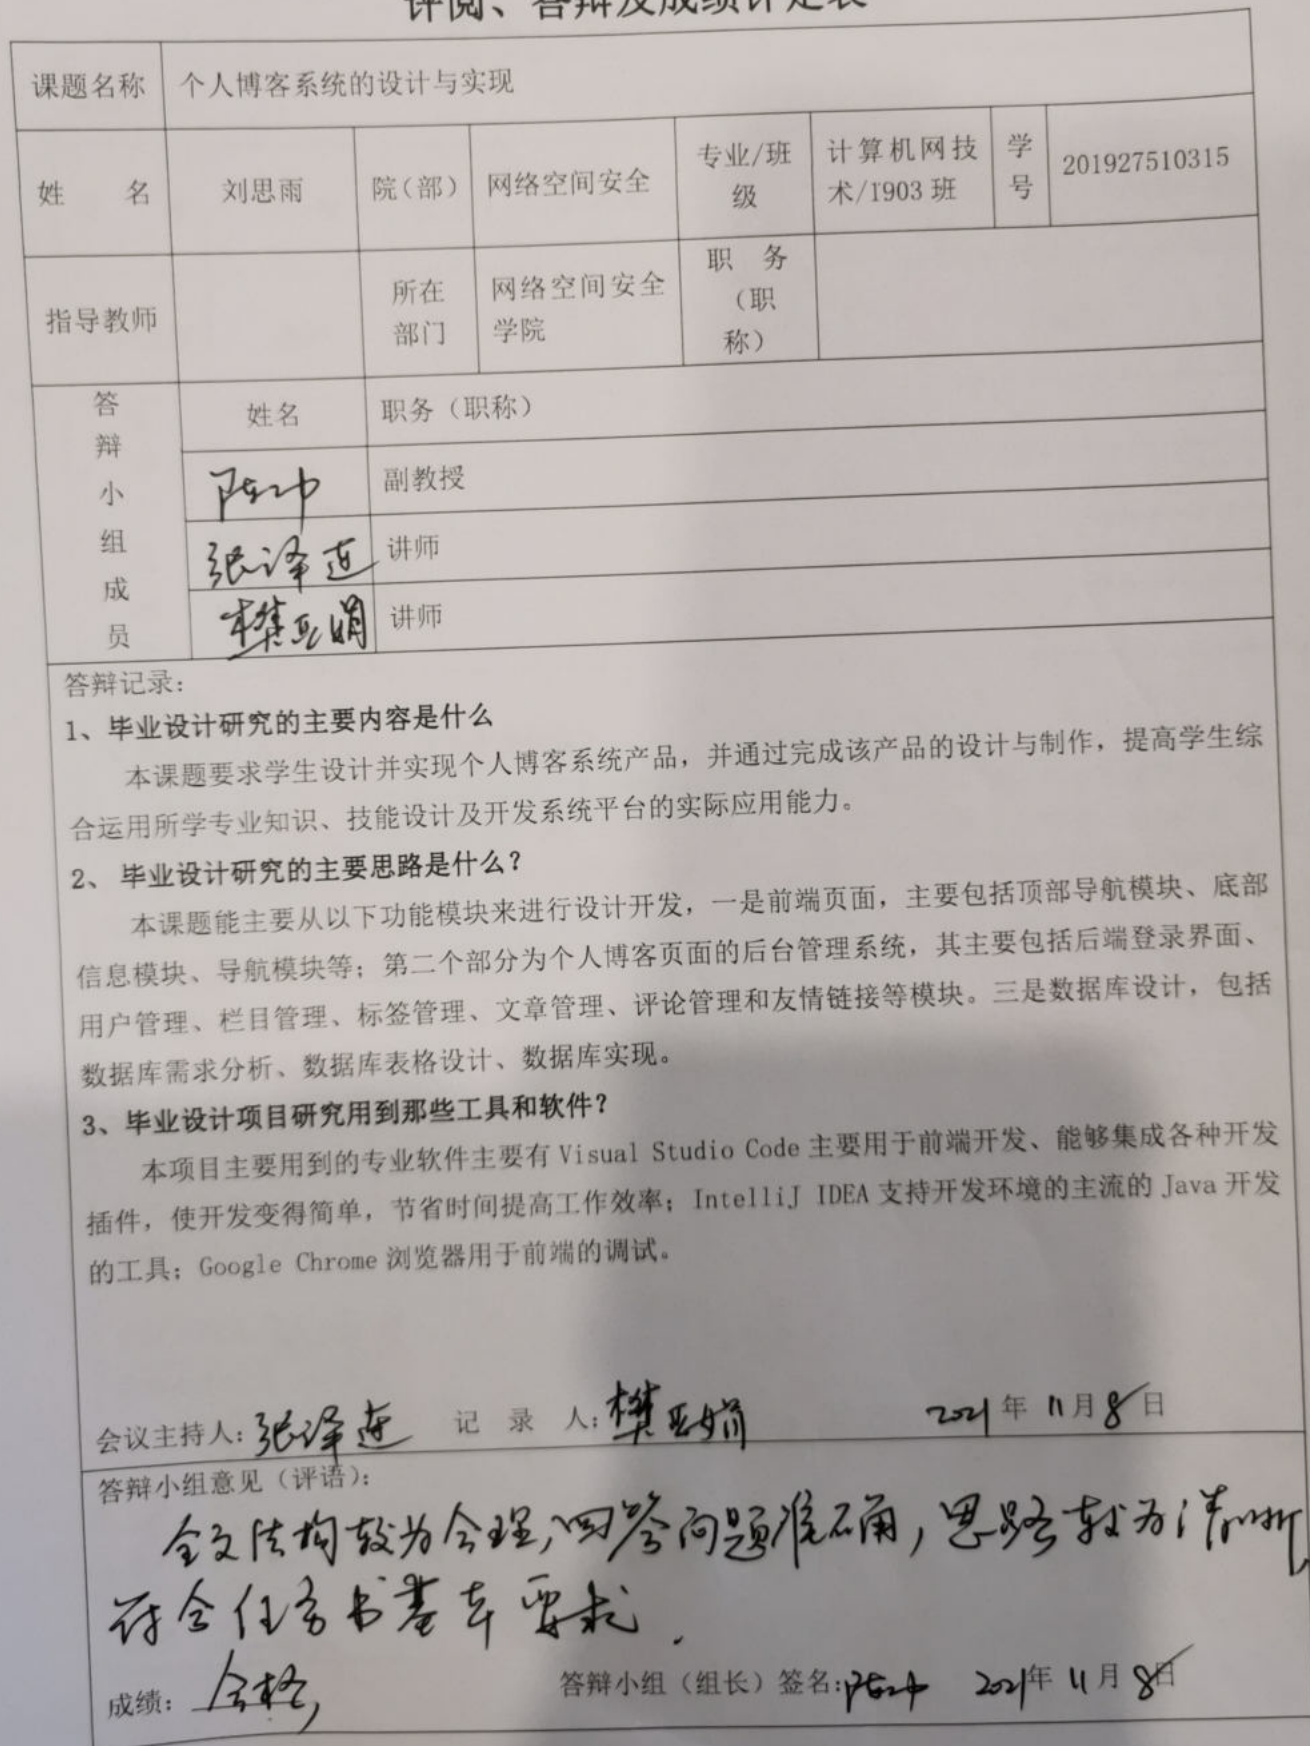 评阅、答辩及成绩评定表
课题名称 个人博客系统的设计与实现
姓 名 刘思雨 院(部) 网络空间安全 专业/班级 计算机网技术/1903班 学号 201927510315
指导教师 所在部门 网络空间安全学院 职务(职称)
答辩小组成员 姓名 职务（职称）
副教授
张泽连 讲师
樊亚娟 讲师
答辩记录：
1、毕业设计研究的主要内容是什么
本课题要求学生设计并实现个人博客系统产品，并通过完成该产品的设计与制作，提高学生综
合运用所学专业知识、技能设计及开发系统平台的实际应用能力。
2、 毕业设计研究的主要思路是什么？
本课题能主要从以下功能模块来进行设计开发，一是前端页面，主要包括顶部导航模块、底部
信息模块、导航模块等；第二个部分为个人博客页面的后台管理系统，其主要包括后端登录界面、
用户管理、栏目管理、标签管理、文章管理、评论管理和友情链接等模块。三是数据库设计，包括
数据库需求分析、数据库表格设计、数据库实现。
3、毕业设计项目研究用到那些工具和软件？
本项目主要用到的专业软件主要有 Visual Studio Code 主要用于前端开发、能够集成各种开发
插件，使开发变得简单，节省时间提高工作效率；IntelliJ IDEA 支持开发环境的主流的 Java 开发
的工具；Google Chrome 浏览器用于前端的调试。
会议主持人：张泽连 记 录 人：樊亚娟 2021年11月8日
答辩小组意见（评语）：
全文结构较为合理，回答问题准确，思路较为清晰
符合任务书基本要求.
成绩：合格 答辩小组（组长）签名： 2021年11月8日